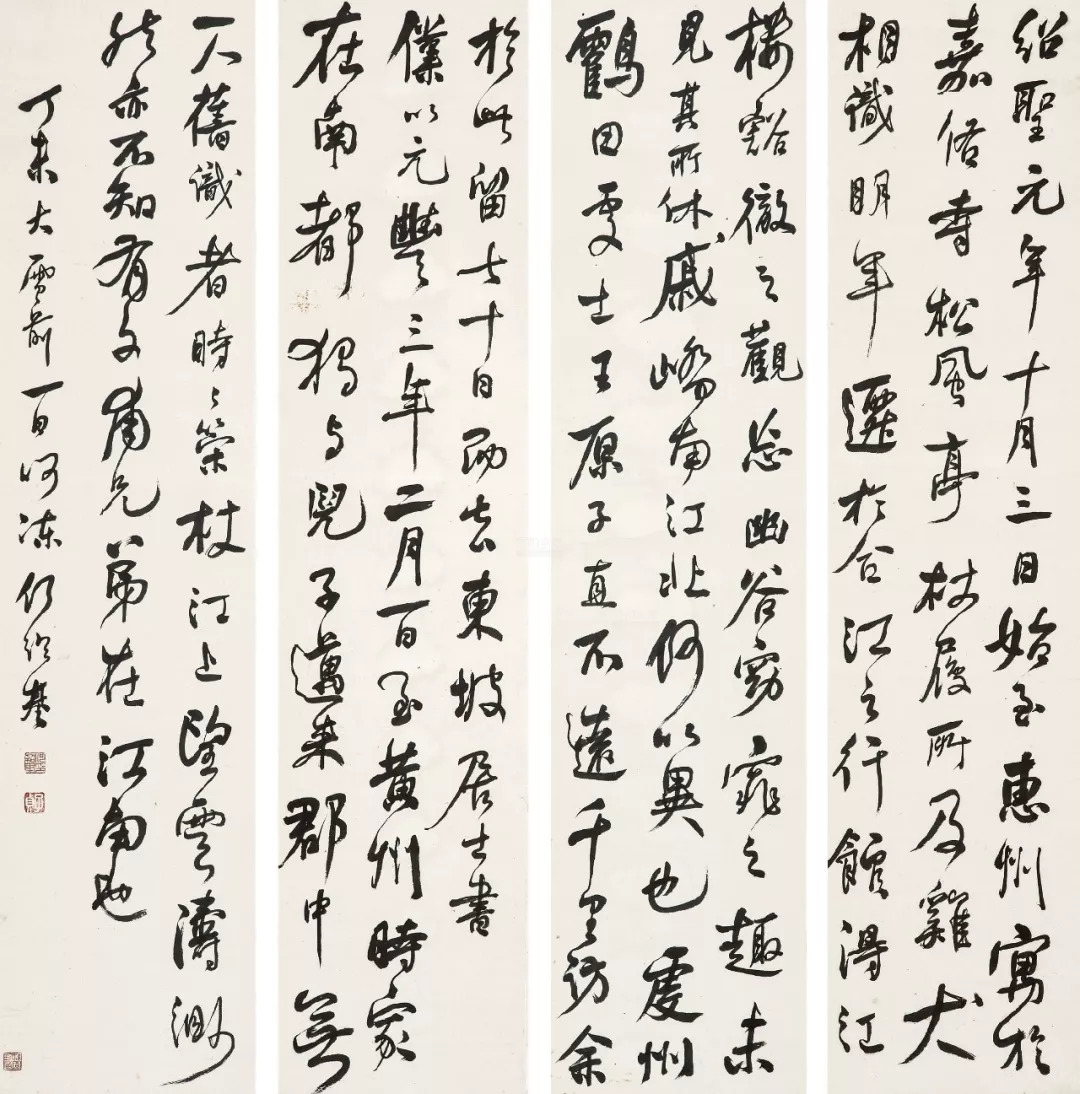 紹聖元年十月三日始至惠州寓於
嘉祐寺松風亭杖履所及雞犬
相識明年遷於合江之行館得江
樓豁徹之觀忘幽谷窈窕之趣未
見其所休戚嶠南江北何以異也虔州
鶴田處士王原子直不遠千里訪余
於此留七十日而去東坡居士書
僕以元豐三年二月一日至黃州時家
在南都獨与兒子邁來郡中無
一人舊識者時〻策杖江上望雲濤渺
然亦不知有文甫兄弟在江南也
丁未大雪前一日呵凍何紹基